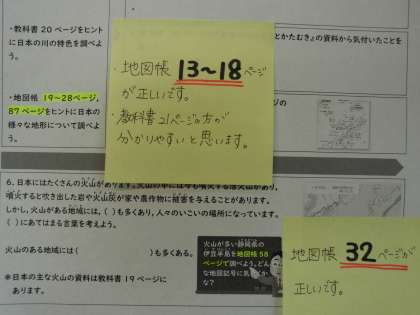 ・教科書20ページをヒント
に日本の川の特色を調べよ
う。
とかたむき』の資料から気付いたことを
・地図帳13～18ページ
が正しいです。
・教科書21ページの方が
分かりやすいと思います。
・地図帳 19～28ページ,
87ページをヒントに日本の
様々な地形について調べよ
う。
ジの
6. 日本にはたくさんの火山があります。火山の中には今も噴火する活火山があり、
噴火すると吹き出した岩や火山灰が家や農作物に被害を与えることがあります。
しかし、火山がある地域には、( )も多くあり、人々のいこいの場所になっています。
( )にあてはまる言葉を考えよう。
火山のある地域には( )も多くある。
＊日本の主な火山の資料は教科書19ページに
あります。
火山が多い静岡県の
伊豆半島を地図帳58
ページで調べよう。どん
な地図記号に気
な?
地図帳
32ページが
正しいです。